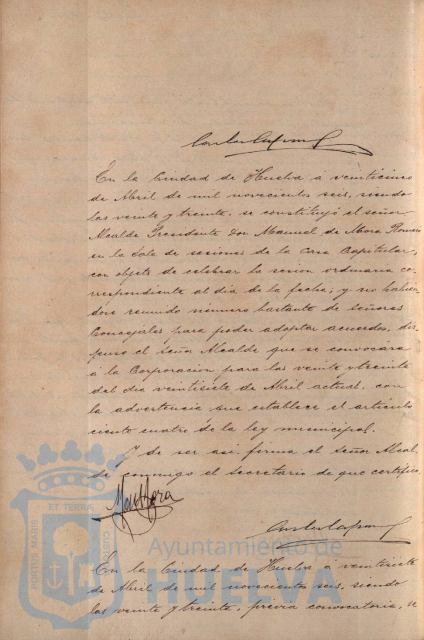 En la Ciudad de Huelva á veinticinco
de Abril de mil novecientos seis, siendo
las veinte y treinta, se constituyó el señor
Alcalde Presidente don Manuel de Mora Romero
en la Sala de sesiones de la Casa Capitular,
con objeto de celebrar la sesion ordinaria co-
rrespondiente al dia de la fecha; y no habien-
dose reunido número bastante de señores
Concejales para poder adoptar acuerdos, dis-
puso el señor Alcalde que se convocára
á la Corporacion para las veinte y treinta
del dia veintisiete de Abril actual, con
la advertencia que establece el articulo
ciento cuatro de la ley municipal.
Y de ser asi firma el señor Alcal-
de conmigo el secretario de que certifico.
ET TERRA
PORTUS MARIS
CUSTODIA
Ayuntamiento de
HUELVA
En la Ciudad de Huelva á veintisiete
de Abril de mil novecientos seis, siendo
las veinte y treinta, previa convocatoria, se